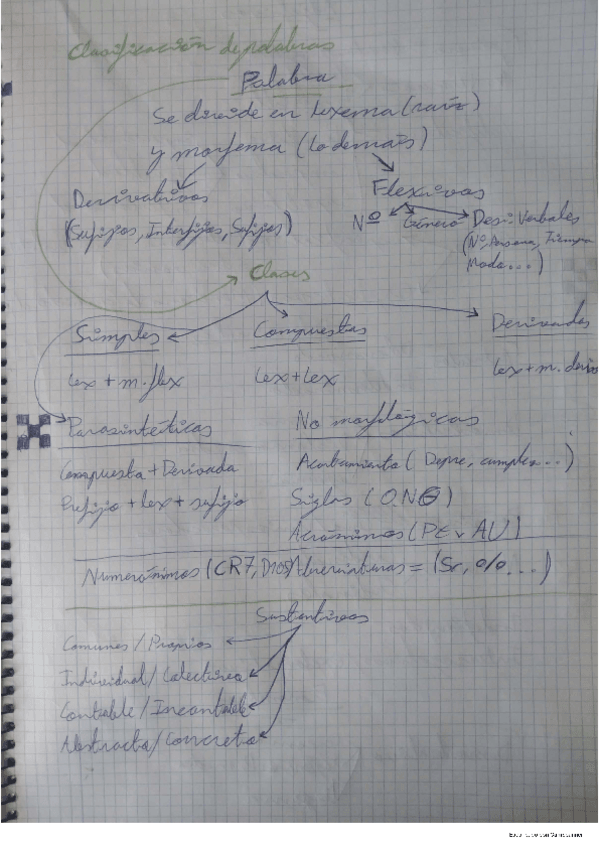 Clasificación de palabras
Palabra
Se divide en lexema (raíz)
y morfema (lo demás)
Derivativos
Flexivos
(Sufijos, Interfijos, Sufijos)
Nº Género Des. Verbales
(Nº, Persona, Tiempo
Modo...)
Clases
Simples Compuestas Derivadas
lex + m. flex lex + lex lex + m. deriv
Parasintéticas No morfológicas
Compuesta + Derivada Acortamiento ( Depre, cumples... )
Prefijo + lex + sufijo Siglas ( O.N
Acrónimos (PE v AU)
Numerónimos (CR7, Abreviaturas = (Sr, %...)
Sustantivos
Comunes / Propios
Individual / Colectivo
Contable / Incontable
Abstracto / Concreto